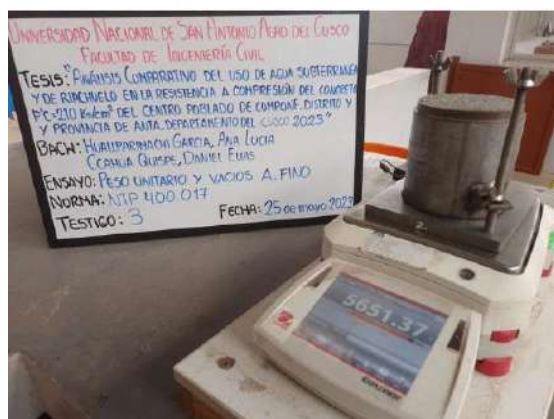 UNIVERSIDAD NACIONAL DE SAN ANTONIO ABAD DEL CUSCO
FACULTAD DE INGENIERÍA CIVIL
TESIS: "ANÁLISIS COMPARATIVO DEL USO DE AGUA SUBTERRANEA
Y DE RIACHUELO EN LA RESISTENCIA A COMPRESIÓN DEL CONCRETO
F'C=210 KG/CM² DEL CENTRO POBLADO DE COMPONE, DISTRITO Y
Y PROVINCIA DE ANTA, DEPARTAMENTO DEL CUSCO 2023"
BACH: HUALLPARIMACHI GARCIA, ANA LUCIA
CCAHUA QUISPE, DANIEL ELIAS
ENSAYO: PESO UNITARIO Y VACIOS A. FINO
NORMA: NTP 400.017
TESTIGO: 3 FECHA: 25 de mayo 2023
5651.37
EXPLORER